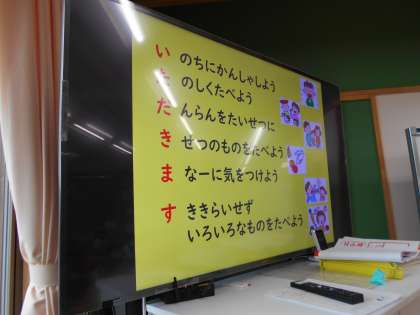 い のちにかんしゃしよう
た のしくたべよう
だ んらんをたいせつに
き せつのものをたべよう
ま なーに気をつけよう
す ききらいせず
いろいろなものをたべよう